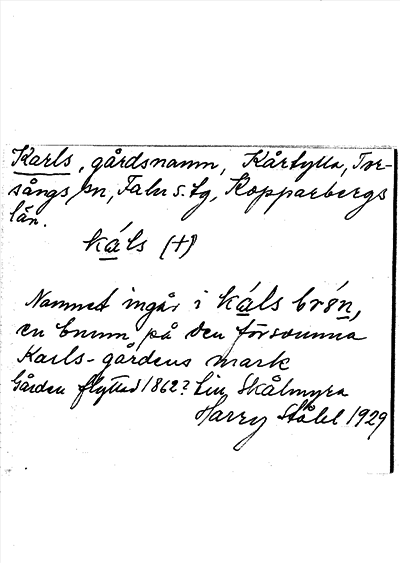 Karls, gårdsnamn, Kårtylla, Tor-
sångs sn, Falu s. tg, Kopparbergs
län.
káls (+)
Namnet ingår i káls brǿn,
en brunn på den försvunna
Karls-gårdens mark
Gården flyttad 1862? till Skålmyra
Harry Ståhl 1929